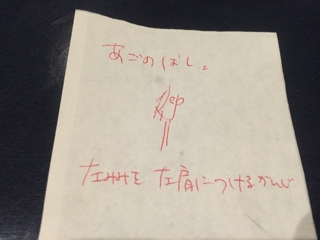 あごのばし。
左みみを 左肩につけるかんじ